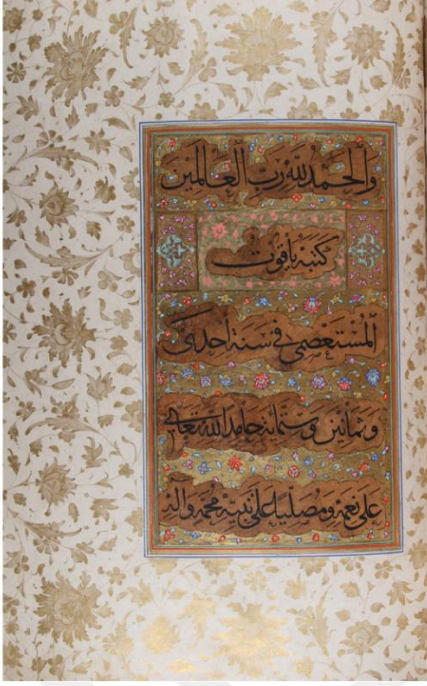 وَالحَمدُ لِلّٰهِ رَبِّ العَالَمِينَ
كَتَبَهُ يَاقوُت
المُسْتَعصِمي في سَنَةِ اِحدَى
وَثمَانِينَ وَسِتّمائه حَامِداً لله تَعَالى
عَلى نِعَمِهِ وَمُصَلّياً عَلى نَبِيّهِ مُحَمّد وَآلِهِ